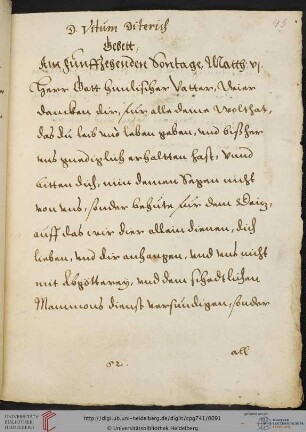 93
D. Vitum Diterich
Gebett,
Am funffzehenden Sontage, Matth. vj.
Herr Gott himlischer Vatter, Weier
dancken dir, fur alle deine Wolthat,
das du leib vns leben geben, vnd bißher
vns gnediglich erhaltten hast, vnnd
bitten dich, nim deinen Segen nicht
von vns, sonder behüte fur dem Geitz,
auff das wir dier allein dienen, dich
lieben, vnd dir anhangen, vnd vns nicht
mit Abgötterey, vnd dem schedtlichen
Mammons dienst versündigen, sonder
all
52.
UNIVERSITÄTS-
BIBLIOTHEK
HEIDELBERG
http://digi.ub.uni-heidelberg.de/diglit/cpg741/0091
© Universitätsbibliothek Heidelberg